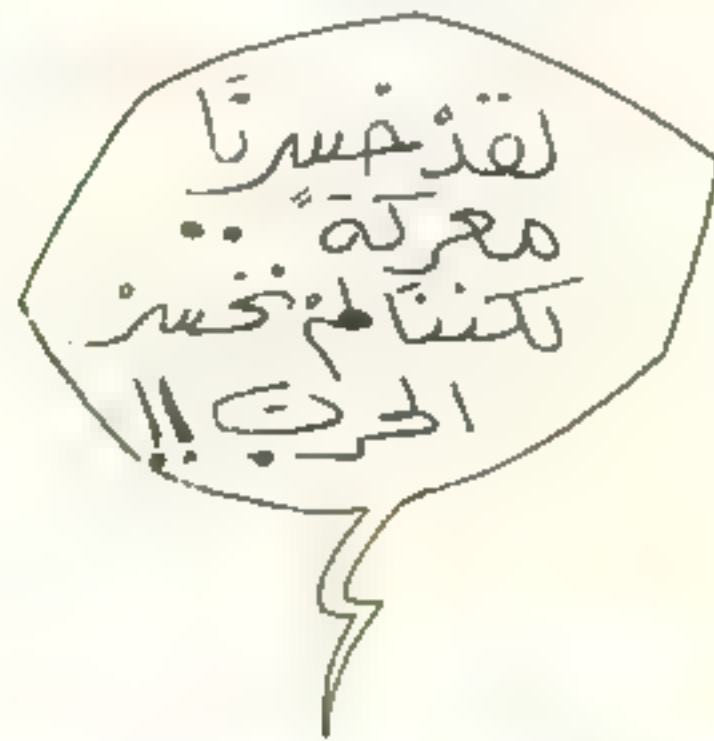 لَقَدْ خَسِرْنَا
مَعْرَكَةً ..
لكننا لمْ نخسرْ
الحرب !!